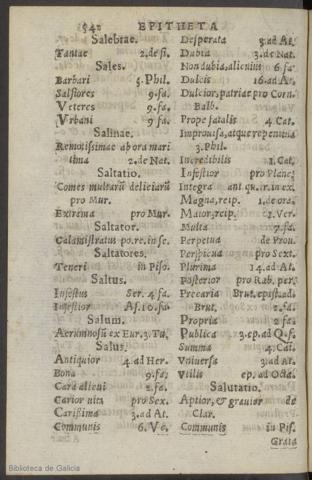 542 EPITHETA
Salebrae.
Tantae 2. de fi.
Sales.
Barbari 5. Phil.
Salsiores 9. fa.
Veteres 9. fa.
Vrbani 9. fa.
Salinae.
Remotissimae ab ora mari
tima 2. de Nat.
Saltatio.
Comes multarū deliciarū
pro Mur.
Extrema pro Mur.
Saltator.
Calamistratus po. re. in se.
Saltatores.
Teneri in Piso.
Saltus.
Infestus Ser. 4. fa.
Infestior As. 10. fa.
Salum.
Aerumnosū ex Eur. 3. Tu.
Salus.
Antiquior 4. ad Her.
Bona 9. fa.
Cara alieni 2. fa.
Carior vita pro Sex.
Carissima 3. ad At.
Communis 6. Ve.
Desperata 3. ad At.
Dubia 3. de Nat.
Non dubia, alieni 6. fa.
Dulcis 16. ad At.
Dulcior, patriae pro Corn.
Balb.
Prope fatalis 4. Cat.
Improuisa, atque repentina
3. Phil.
Incredibilis 1. Cat.
Infestior pro Planc.
Integra ant. qu. ir. in ex.
Magna, reip. 1. de ora.
Maior, reip. 1. Ver.
Multa 7. fa.
Perpetua de Prou.
Perspicua pro Sext.
Plurima 14. ad At.
Posterior pro Rab. per.
Precaria Brut. epist. ad.
Brut. 2. fa.
Propria 2. fa.
Publica 3. ep. ad Q. f.
Summa 4. Cat.
Vniuersa 3. ad At.
Vtilis ep. ad Octa.
Salutatio.
Aptior, & grauior de
Clar.
Communis in Pis.
Grata
Biblioteca de Galicia